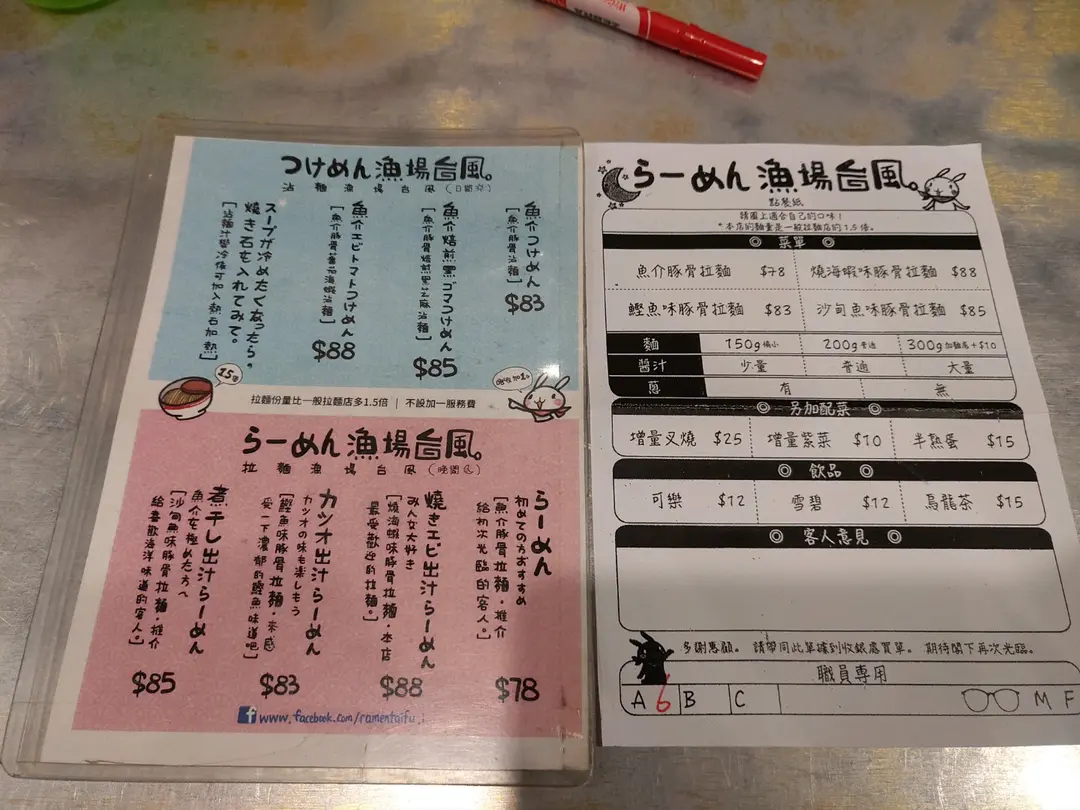 つけめん漁場台風。
沾麵漁場台風(日間)
魚介つけめん
[魚介豚骨沾麵]
$83
魚介焙煎黒ゴマつけめん
[魚介豚骨焙煎黑芝麻沾麵]
$85
魚介エビトマトつけめん
[魚介豚骨蕃茄海蝦沾麵]
$88
スープが冷めたくなったら。
焼き石を入れてみて。
[沾麵汁變冷後可加入熱石加熱]
1.5倍
拉麵份量比一般拉麵店多1.5倍 | 不設加一服務費
らーめん漁場台風。
拉麵漁場台風(晚間)
らーめん
初めての方おすすめ
[魚介豚骨拉麵・推介
給初次光臨的客人。]
$78
焼きエビ出汁らーめん
みんな大好き
[燒海蝦味豚骨拉麵・本店
最受歡迎的拉麵。]
$88
カツオ出汁らーめん
カツオの味も楽しもう
[鰹魚味豚骨拉麵・來感
受一下濃郁的鰹魚味道吧]
$83
煮干し出汁らーめん
魚介を極めた方へ
[沙甸魚味豚骨拉麵・推介
給喜歡海洋味道的客人。]
$85
www.facebook.com/ramentaifu.j
ZEBRA
らーめん漁場台風。
點餐紙
請圈上適合自己的口味!
*本店的麵量是一般拉麵店的1.5倍。
◎ 菜單 ◎
魚介豚骨拉麵 $78 燒海蝦味豚骨拉麵 $88
鰹魚味豚骨拉麵 $83 沙甸魚味豚骨拉麵 $85
麵 150g偏小 200g普通 300g加麵底+$10
醬汁 少量 普通 大量
蔥 有 無
◎ 另加配菜 ◎
增量叉燒 $25 增量紫菜 $10 半熟蛋 $15
◎ 飲品 ◎
可樂 $12 雪碧 $12 烏龍茶 $15
◎ 客人意見 ◎
多謝惠顧。請帶同此單據到收銀處買單。期待閣下再次光臨。
職員専用
A 6 B C M F